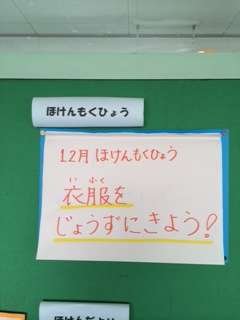 ほけんもくひょう
12月 ほけんもくひょう
いふく
衣服を
じょうずにきよう!
ほけんだより